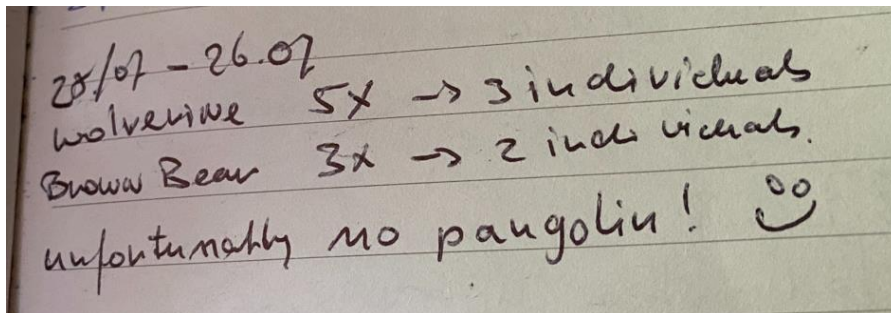 25/07 - 26.07
Wolverine 5x → 3 individuals
Brown Bear 3x → 2 individuals.
unfortunately no pangolin!